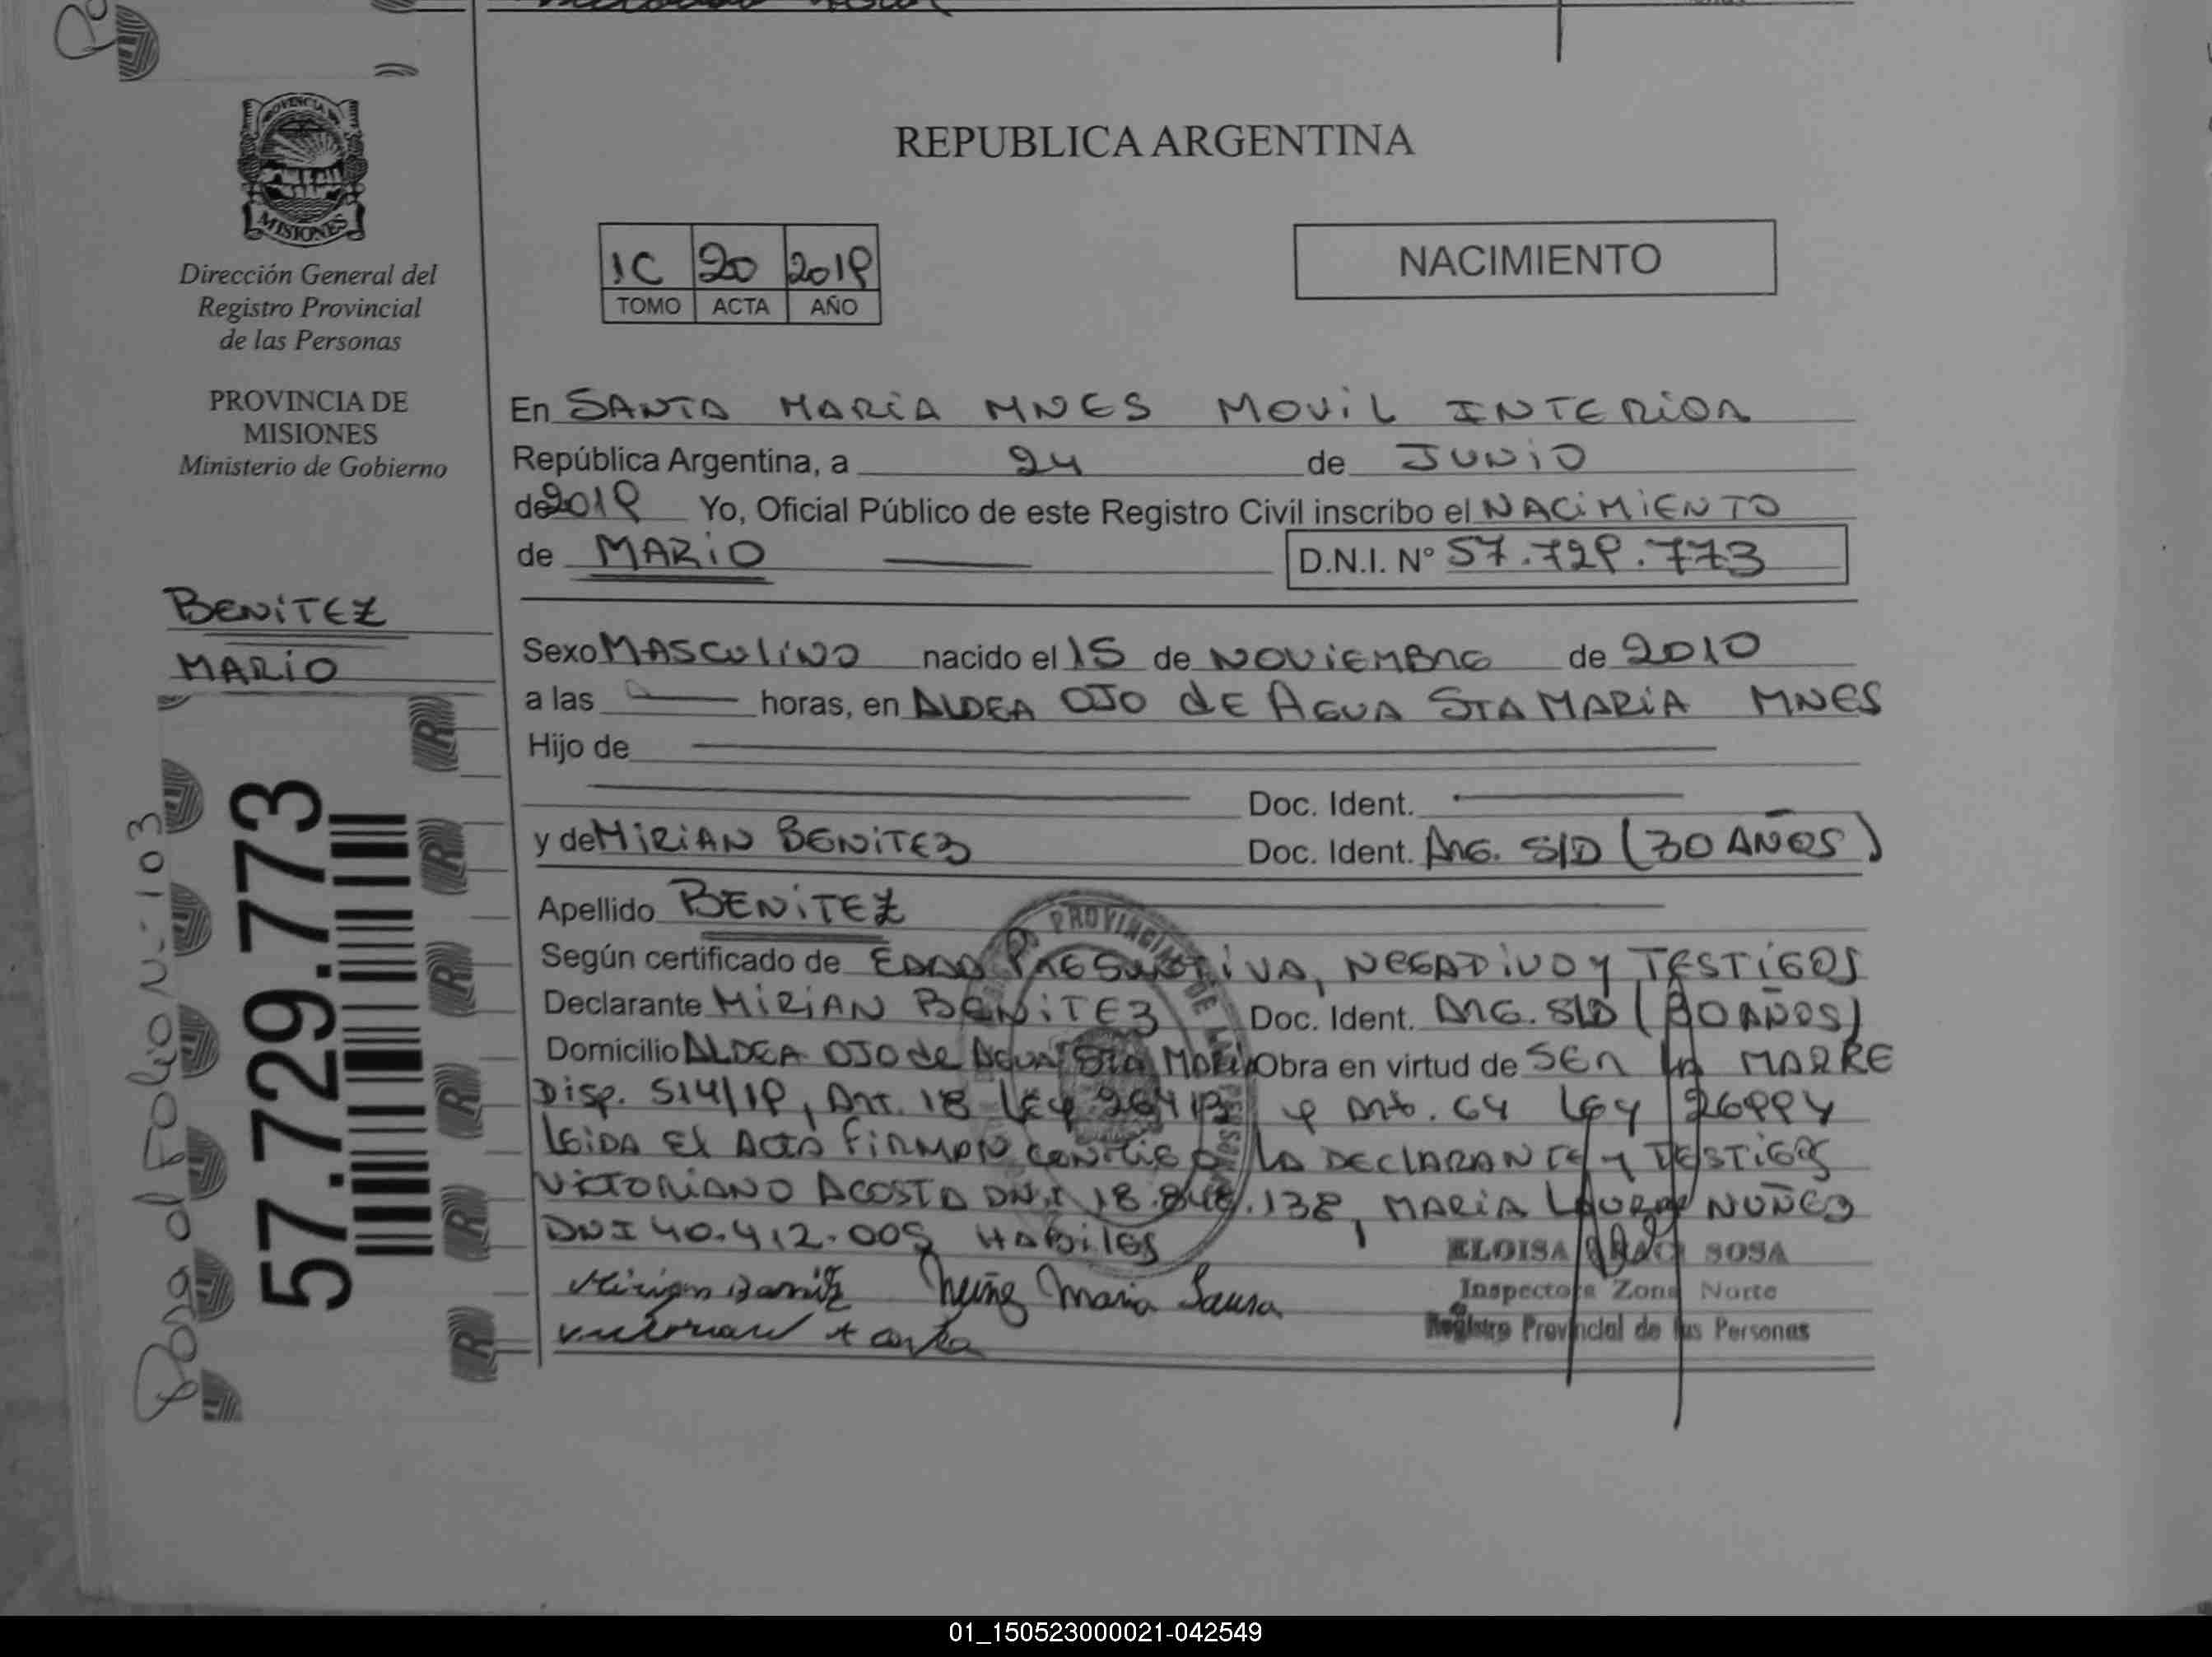 PROVINCIA DE
MISIONES
Dirección General del
Registro Provincial
de las Personas
PROVINCIA DE
MISIONES
Ministerio de Gobierno
BENITEZ
MARIO
57.729.773
R
R
R
R
R
R
Pasa al Folio Nº 103
REPUBLICA ARGENTINA
1C 20 2019
TOMO ACTA AÑO
NACIMIENTO
En SANTA MARIA MNES MOVIL INTERIOR
República Argentina, a 24 de JUNIO
de 2019 Yo, Oficial Público de este Registro Civil inscribo el NACIMIENTO
de MARIO D.N.I. Nº 57.729.773
Sexo MASCULINO nacido el 15 de NOVIEMBRE de 2010
a las horas, en ALDEA OJO de AGUA STA MARIA MNES
Hijo de
Doc. Ident.
y de MIRIAN BENITEZ Doc. Ident. ARG. S/D (30 AÑOS)
Apellido BENITEZ
Según certificado de EDAD PRESUNTIVA, NEGATIVO Y TESTIGOS
Declarante MIRIAN BENITEZ Doc. Ident. ARG. S/D (30 AÑOS)
Domicilio ALDEA OJO de AGUA STA MARIA Obra en virtud de SER LA MADRE
Disp. 514/19, Art. 18 LEY 26413 y Art. 64 LEY 26994
LEIDA EL ACTA FIRMAN CONMIGO LA DECLARANTE Y TESTIGOS
VICTORIANO ACOSTA DNI 18.848.138, MARIA LAURA NUÑEZ
DNI 40.412.005 HABILES
Mirian Benitez Nuñez Maria Laura
Victoriano Acosta
ELOISA SOSA
Inspectora Zona Norte
Registro Provincial de las Personas
PROVINCIAL DE LAS PERSONAS
01_150523000021-042549